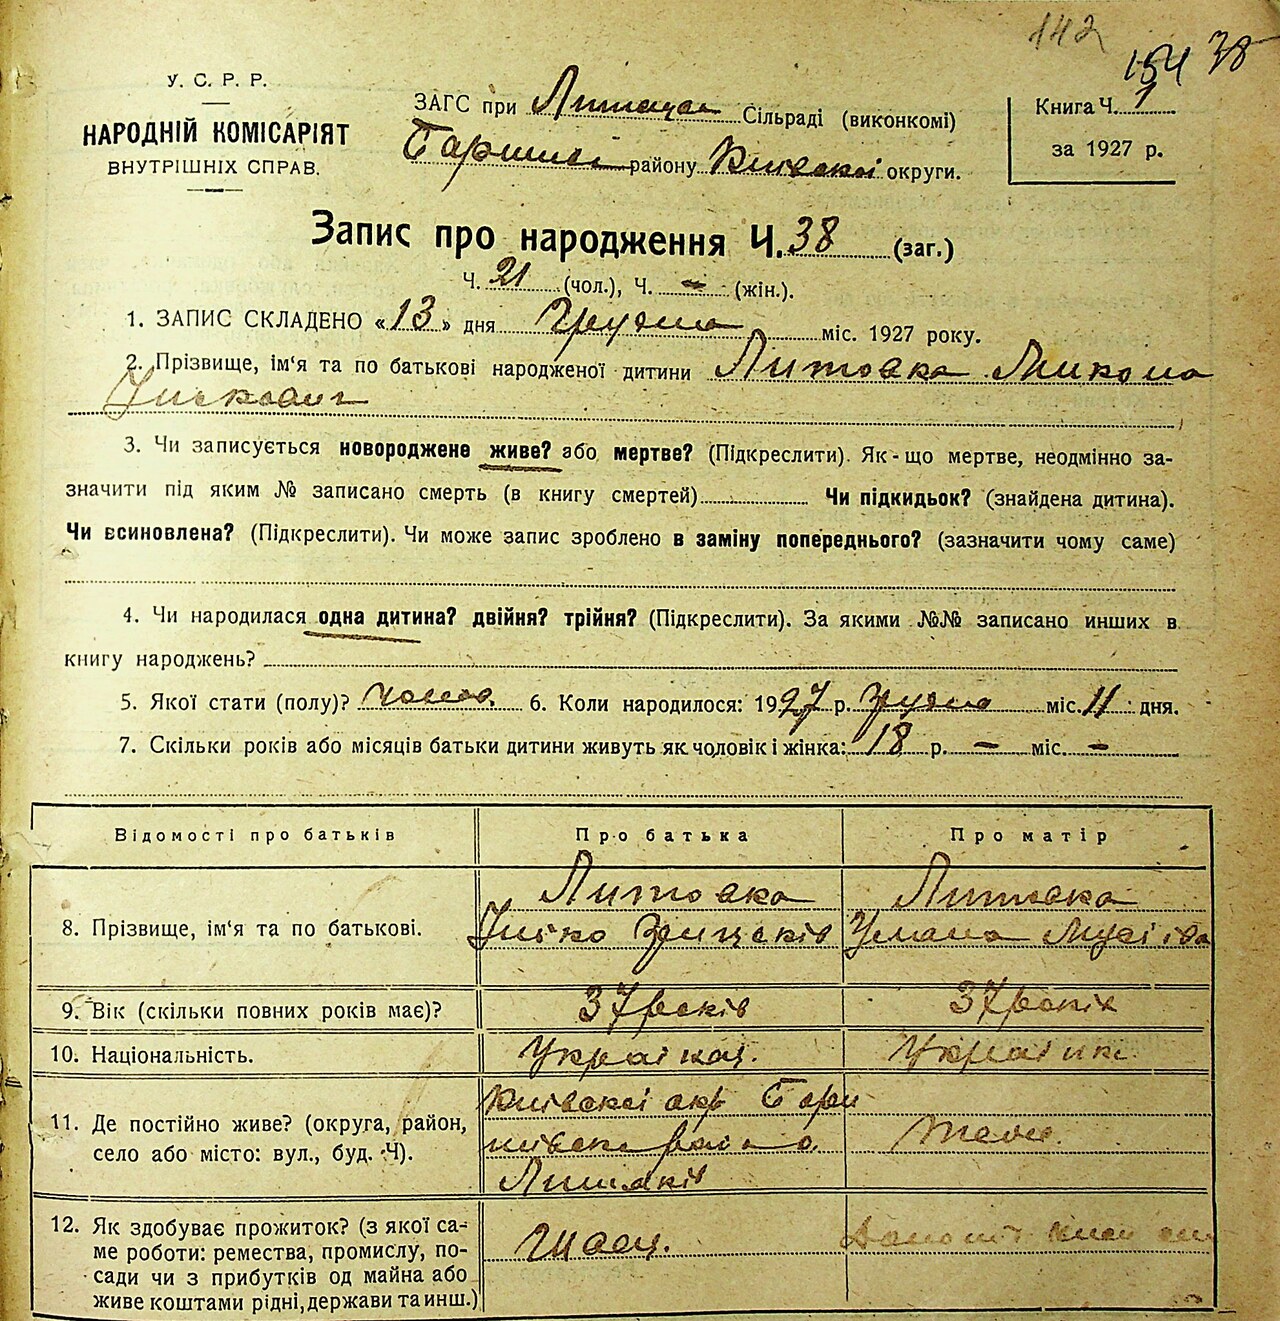 142
154 38
У. С. Р. Р.
НАРОДНІЙ КОМІСАРІЯТ
ВНУТРІШНІХ СПРАВ.
ЗАГС при Сільраді (виконкомі)
району Київської округи.
Книга Ч. 1
за 1927 р.
Запис про народження Ч. 38 (заг.)
Ч. 21 (чол.), Ч. - (жін.).
1. ЗАПИС СКЛАДЕНО «13» дня Грудня міс. 1927 року.
2. Прізвище, ім'я та по батькові народженої дитини Литовка Микола
Юхкович
3. Чи записується новороджене живе? або мертве? (Підкреслити). Як-що мертве, неодмінно за-
значити під яким № записано смерть (в книгу смертей) Чи підкидьок? (знайдена дитина).
Чи всиновлена? (Підкреслити). Чи може запис зроблено в заміну попереднього? (зазначити чому саме)
4. Чи народилася одна дитина? двійня? трійня? (Підкреслити). За якими №№ записано инших в
книгу народжень?
5. Якої стати (полу)? 6. Коли народилося: 1927 р. грудня міс. 11 дня.
7. Скільки років або місяців батьки дитини живуть як чоловік і жінка: 18 р. - міс. -
Відомості про батьків Про батька Про матір
Литовка Литовка
8. Прізвище, ім'я та по батькові.
9. Вік (скільки повних років має)? 37 років 37 років
10. Національність. Українец. Українк
11. Де постійно живе? (округа, район,
село або місто: вул., буд. Ч). Київскої окр Бори
12. Як здобуває прожиток? (з якої са-
ме роботи: ремества, промислу, по-
сади чи з прибутків од майна або
живе коштами рідні, держави та инш.)